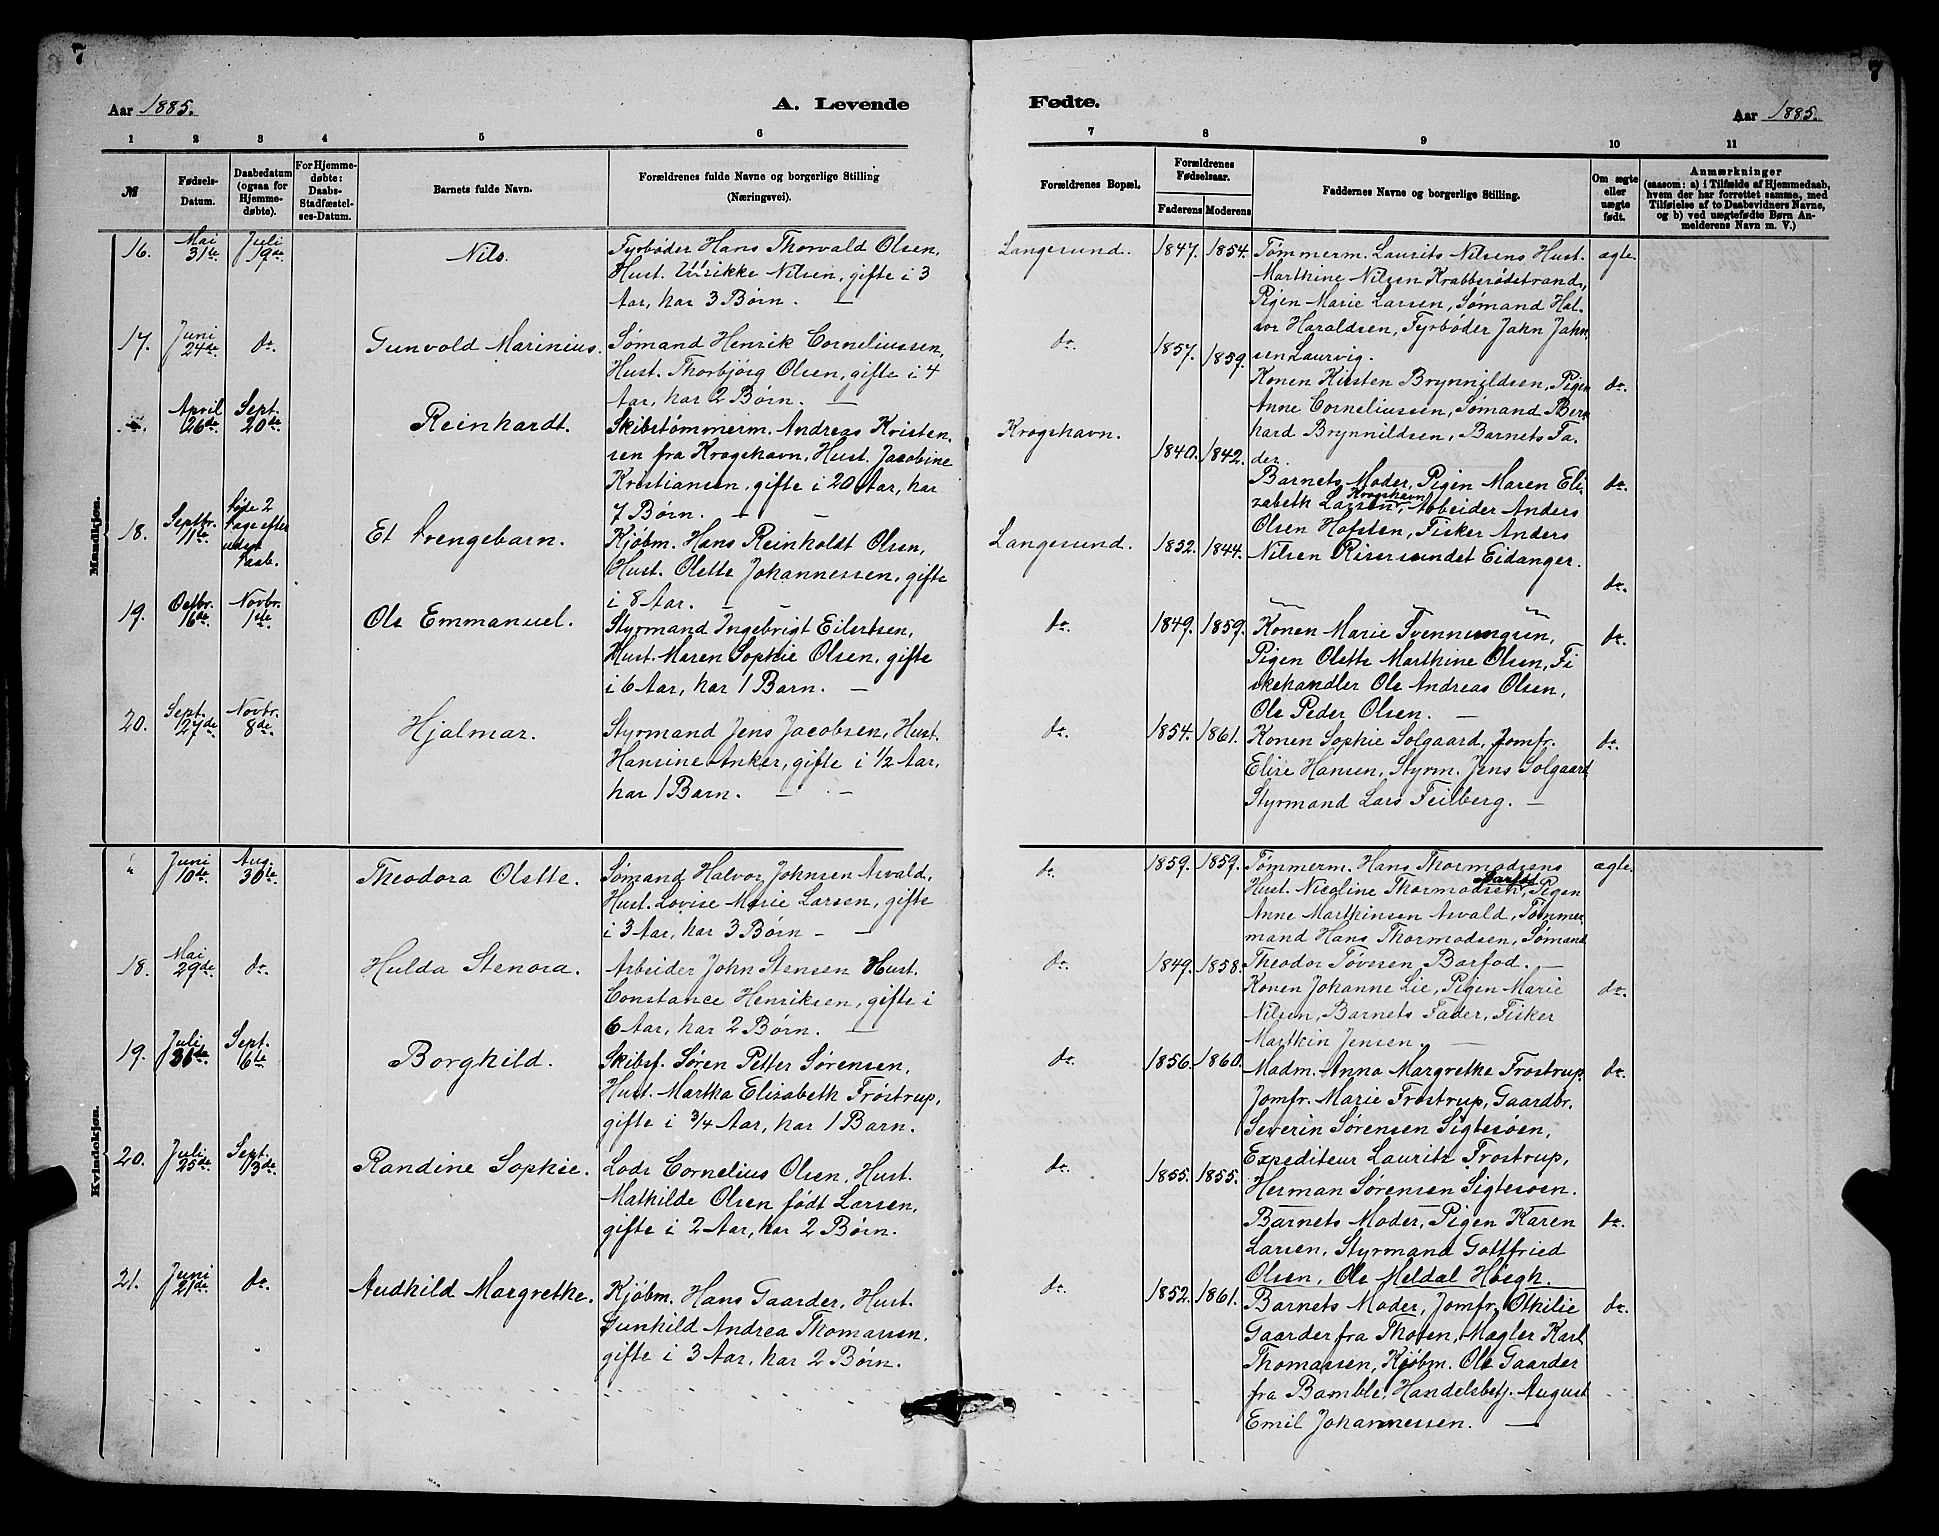 7
7
Aar 1885.
A. Levende
Fødte.
Aar 1885.
1 2 3 4 5 6 7 8 9 10 11
№
Fødsels-
Datum.
Daabsdatum
(ogsaa for
Hjemme-
døbte).
For Hjemme-
døbte:
Daabs-
Stadfæstel-
ses-Datum.
Barnets fulde Navn.
Forældrenes fulde Navne og borgerlige Stilling
(Næringsvei).
Forældrenes Bopæl.
Forældrenes
Fødselsaar.
Faderens Moderens
Faddernes Navne og borgerlige Stilling.
Om ægte
eller
uægte
født.
Anmærkninger
(saasom: a) i Tilfælde af Hjemmedaab,
hvem der har forrettet samme, med
Tilføielse af to Daabsvidners Navne,
og b) ved uægtefødte Børn An-
melderens Navn m. V.)
Mandkjøn.
16.
Mai
31te
Juli
19de
Nils.
Fyrbøder Hans Thorvald Olsen,
Hust. Ulrikke Nilsen, gifte i 3
Aar, har 3 Børn. —
Langesund.
1847. 1854.
Tømmerm. Laurits Nilsens Hust.
Marthine Nilsen Krabberødstrand,
Pigen Marie Larsen, Sømand Hal-
vor Haraldsen, Fyrbøder Jahn Jahn-
sen Laurvig.
ægte.
17.
Juni
24de
do.
Gunvold Marinius.
Sømand Henrik Corneliussen,
Hust. Thorbjörg Olsen, gifte i 4
Aar, har 2 Børn. —
do.
1857. 1859.
Konen Kirsten Brynnildsen, Pigen
Anne Corneliussen, Sømand Bern
hard Brynnildsen, Barnets Fa-
der.
do.
April
26de
Sept.
20de
Reinhardt.
Skibstømmerm. Andreas Kristen,
sen fra Krogshavn, Hust. Jacobine
Kristiansen, gifte i 20 Aar, har
7 Børn. — —
Krogshavn.
1840. 1842.
Barnets Moder, Pigen Maren Eli-
zabeth Larsen Krogshavn, Arbeider Anders
Olsen Hafsten, Fisker Anders
Nilsen Risersundet Eidanger.
do.
18.
Septbr.
11te
Døde 2
Dage efter
uden
Daab.
Et Drengebarn.
Kjøbm. Hans Reinholdt Olsen,
Hust. Olette Johannessen, gifte
i 8 Aar. — —
Langesund.
1852. 1844.
do.
19.
Octbr.
16de
Novbr.
1ste
Ole Emmanuel.
Styrmand Ingebrigt Eilertsen,
Hust. Maren Sophie Olsen, gifte
i 6 Aar, har 1 Barn. —
do.
1849. 1859.
Konen Marie Svennungsen,
Pigen Olette Marthine Olsen, Fi
skehandler Ole Andreas Olsen,
Ole Peder Olsen. —
do.
20.
Sept.
27de
Novbr.
8de
Hjalmar.
Styrmand Jens Jacobsen, Hust.
Hansine Anker, gifte i 1/2 Aar,
har 1 Barn. — —
do.
1854. 1861.
Konen Sophie Solgaard, Jomfr.
Elise Hansen, Styrm. Jens Solgaard
Styrmand Lars Feilberg. —
do.
Kvindekjøn.
"
Juni
10de
Aug.
30te
Theodora Olette.
Sømand Halvor Johnsen Arvald,
Hust. Lovise Marie Larsen, gifte
i 3 Aar, har 3 Børn — —
do.
1859. 1859.
Tømmerm. Hans Thormodsens
Hust. Nicoline Thormodsen Barfod, Pigen
Anne Marthinsen Arvald, Tømmer
mand Hans Thormodsen, Sømand
Theodor Tövesen Barfod. —
ægte.
18.
Mai
29de
do.
Hulda Stenora.
Arbeider John Stensen Hust.
Constance Henriksen, gifte i
6 Aar, har 2 Børn. —
do.
1849. 1858.
Konen Johanne Lie, Pigen Marie
Nilsen, Barnets Fader, Fisker
Marthin Jensen. —
do.
19.
Juli
Sept.
6te
Borghild.
Skibsf. Søren Petter Sørensen,
Hust. Martha Elizabeth Frøstrup,
gifte i 3/4 Aar, har 1 Barn.
do.
1856. 1860.
Madm. Anna Margrethe Frøstrup,
Jomfr. Marie Frøstrup, Gaardbr.
Severin Sørensen Sigtesøen,
Expediteur Lauritz Frostrup,
Herman Sørensen Sigtesøen.
do.
20.
Juli
25de
Sept.
13de
Randine Sophie.
Lods Cornelius Olsen, Hust.
Mathilde Olsen født Larsen,
gifte i 2 Aar, har 2 Børn.
do.
1855. 1855.
Barnets Moder, Pigen Karen
Larsen, Styrmand Gottfried
Olsen, Ole Meldal Høegh.
do.
21.
Juni
21de
do.
Audhild Margrethe.
Kjøbm. Hans Gaarder, Hust.
Gunhild Andrea Thomassen,
gifte i 3 Aar, har 2 Børn.
do.
1852. 1861.
Barnets Moder, Jomfr. Othilie
Gaarder fra Thoven, Mægler Karl
Thomassen, Kjøbm. Ole Gaarder
fra Bamble, Handelsbetj. August
Emil Johannessen. —
do.